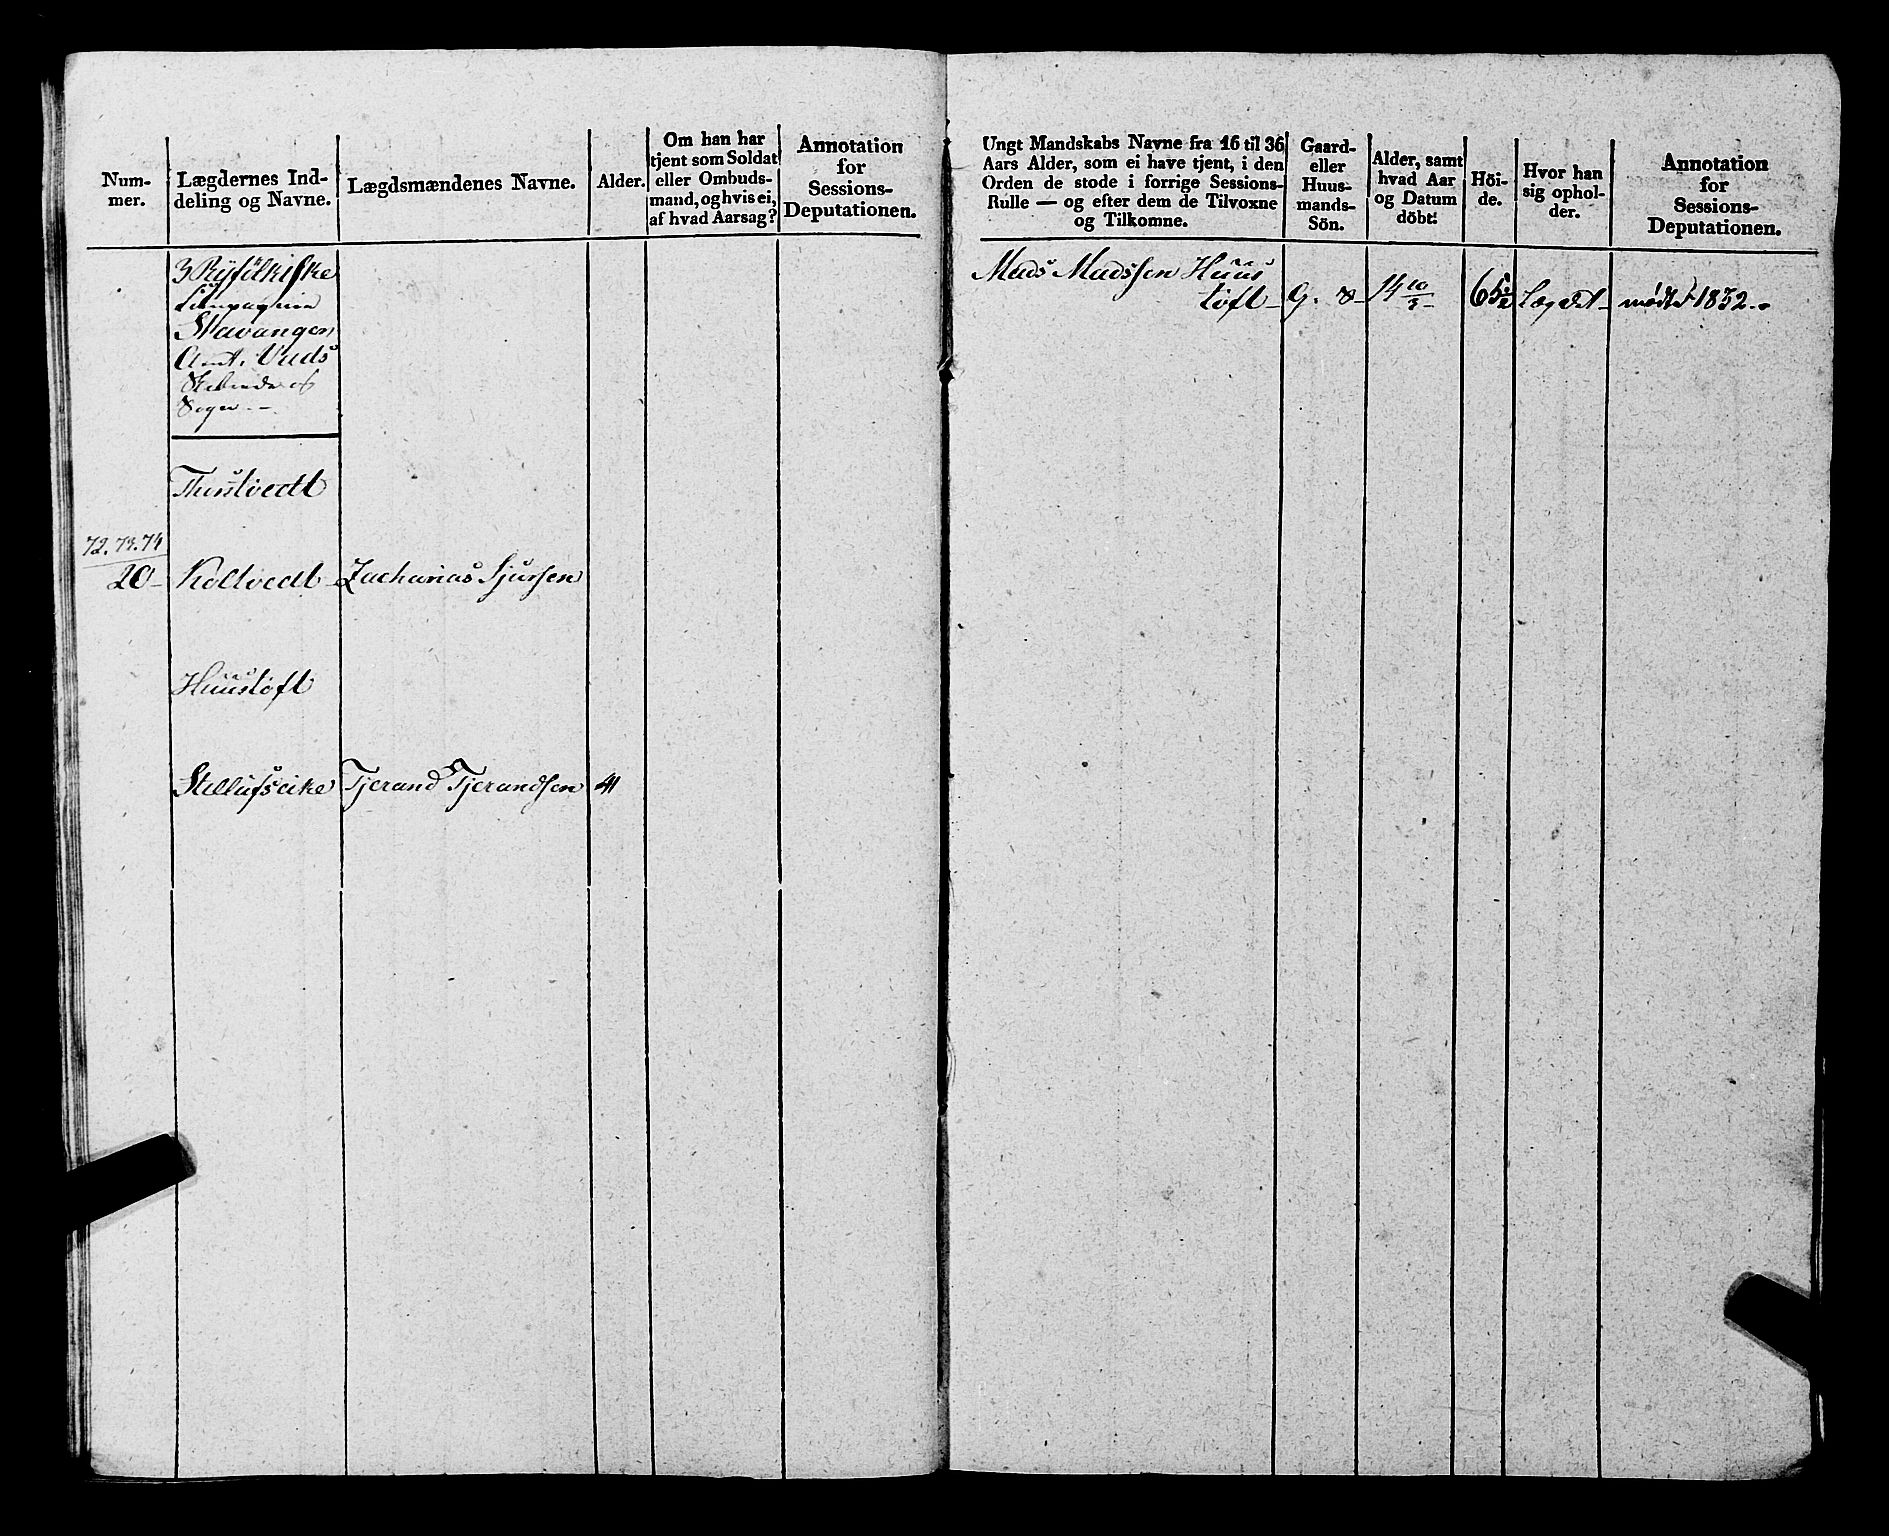 Num-
mer.
Lægdernes Ind-
deling og Navne.
Lægdsmændenes Navne.
Alder.
Om han har
tjent som Soldat
eller Ombuds-
mand, og hvis ei,
af hvad Aarsag?
Annotation
for
Sessions-
Deputationen.
3 Ryfölkiske
Compagnie
Stavanger
Amt.
Sogn
Thustvedt
72. 73. 74
20 Koltvedt Zacharias Sjursen
Huustoft
Tjerand Tjerandsen 41
Ungt Mandskabs Navne fra 16 til 36
Aars Alder, som ei have tjent, i den
Orden de stode i forrige Sessions-
Rulle — og efter dem de Tilvoxne
og Tilkomne.
Gaard-
eller
Huus-
mands-
Sön.
Alder, samt
hvad Aar
og Datum
döbt:
Höi-
de.
Hvor han
sig ophol-
der.
Annotation
for
Sessions-
Deputationen.
Mads Madssen Huus
toft G. S 14 10/3 65 1/2 Lægdet mødt 1832